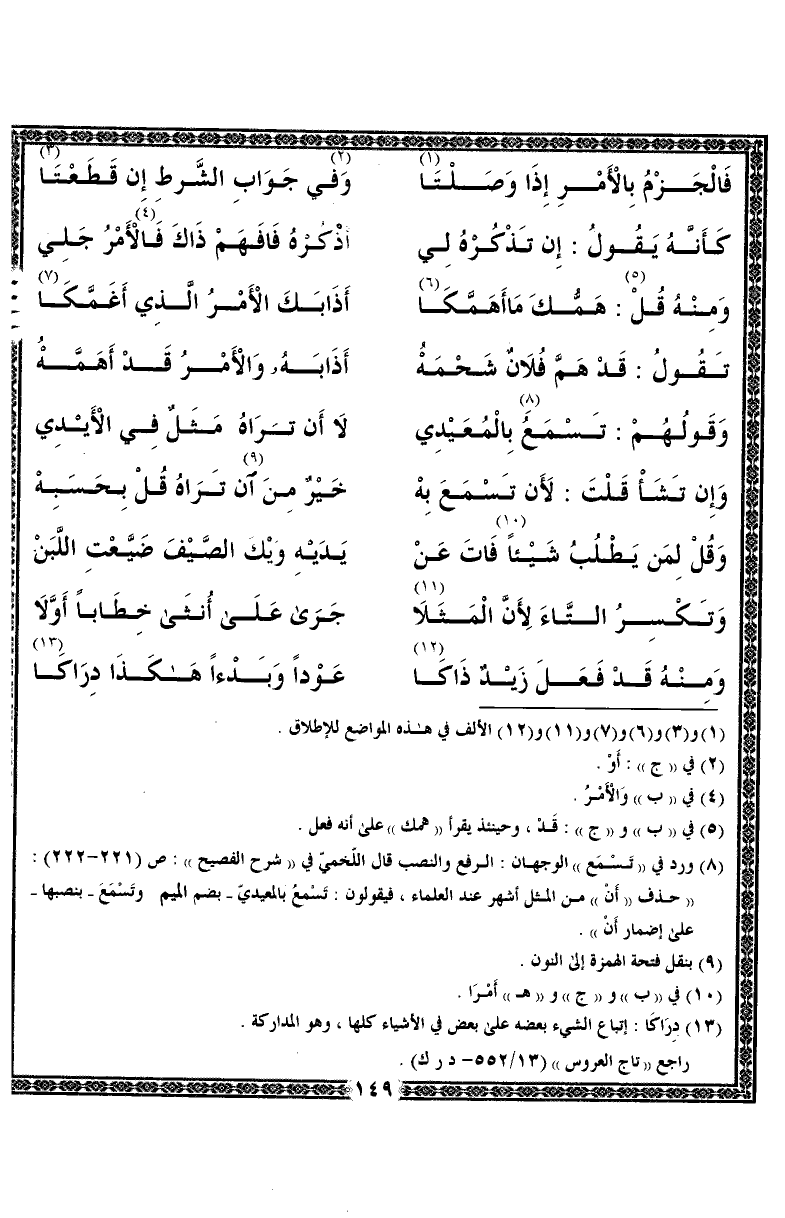 فَالْجَـــزْمُ بِالْأَمْـــرِ إِذَا وَصَـــلْتَـــا (١) وَفِي جَوَابِ (٢) الشَّرطِ إِن قَطَعْتَا (٣)
كَـأَنَّـهُ يَـقُولُ : إِن تَـذْكُـرْهُ لِـي أَذْكُـرْهُ فَافَهِـمْ ذَاكَ فَـالأَمْرُ (٤) جَلِـي
وَمِـنْـهُ قُـلْ (٥) : هَمُّـكَ مَاأَهَمَّكَـا (٦) أَذَابَـكَ الْأَمْـرُ الَّـذِي أَغَمَّكَـا (٧)
تَـقُولُ : قَـدْ هَمَّ فُلَانٌ شَحْمَهُ أَذَابَـهُ، وَالْأَمْرُ قَـدْ أَهَمَّـهُ
وَقَولُهُـمْ : تَـسْمَعُ (٨) بِالْمُعَيْدِي لَا أَن تَـرَاهُ مَثَلٌ فِـي الْأَيْـدِي
وَإِن تَـشَـأْ قُلْتَ : لَأَن تَسْمَعَ بِهْ خَيْرٌ مِـنَ آن (٩) تَـرَاهُ قُـلْ بِحَسَبِهْ
وَقُلْ لِمَن يَطْلُبُ شَيْئاً (١٠) فَاتَ عَنْ يَـدَيْـهِ وَيْكَ الصَّيْفَ ضَيَّعْتِ اللَّبَنْ
وَتَكْـسِـرُ الـتَّاءَ لِأَنَّ الْمَـثَـلَا (١١) جَرَىٰ عَلَـىٰ أُنثَىٰ خِطَاباً أَوَّلَا
وَمِـنْـهُ قَـدْ فَعَـلَ زَيْـدٌ ذَاكَـا (١٢) عَـوْداً وَبَـدْءاً هَـٰـكَـذَا دِرَاكَـا (١٣)
(١) و(٣) و(٦) و(٧) و(١١) و(١٢) الألف في هـٰذه المواضع للإطلاق .
(٢) في « ج » : أَوْ .
(٤) في « ب » وَالْأَمْرُ .
(٥) في « ب » و « ج » : قَدْ ، وحينئذ يقرأ « همك » علىٰ أنه فعل .
(٨) ورد في « تَسْمَع » الوجهان : الرفع والنصب قال اللَّخميّ في « شرح الفصيح » : ص (٢٢١–٢٢٢) :
« حذف « أَنْ » من المثل أشهر عند العلماء ، فيقولون : تَسْمعُ بالمعيديّ ـ بضم الميم وتَسْمَعَ ـ بنصبها ـ
علىٰ إضمار أَنْ » .
(٩) بنقل فتحة الهمزة إلىٰ النون .
(١٠) في « ب » و « ج » و « هـ » أَمْرَا .
(١٣) دِرَاكَا : إتباع الشيء بعضه علىٰ بعض في الأشياء كلها ، وهو المداركة .
راجع « تاج العروس » (٥٥٢/١٣– د ر ك) .
١٤٩